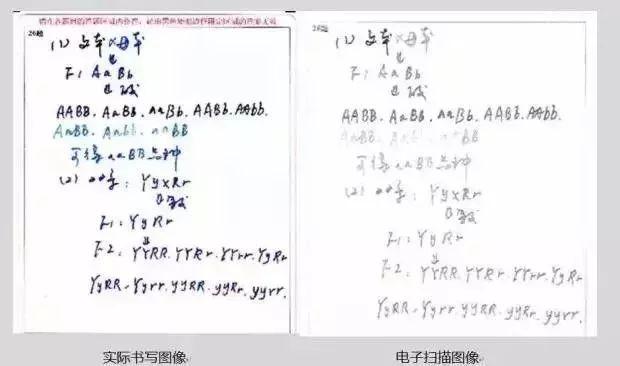 请在各题目的答题区域内作答,超出黑色矩形边框限定区域的答案无效
26题
(1) 父本×母本
↓
F1 AaBb
↓
AABB. AaBB. aaBb. AABb. AAbb.
AaBb. Aabb. aaBB
可得aaBB品种
(2) : YyxRr
↓
F1: YyRr
↓
F2: YYRR. YYRr. YYrr. YyRr
YyRR. Yyrr. yyRR. yyRr. yyrr.
实际书写图像
26题
(1) 父本×母本
↓
F1 AaBb
↓
AABB. AaBB. aaBb. AABb. AAbb.
AaBb. Aabb. aaBB
可得aaBB品种
(2) : YyxRr
↓
F1: YyRr
↓
F2: YYRR. YYRr. YYrr. YyRr
YyRR. Yyrr. yyRR. yyRr. yyrr.
电子扫描图像